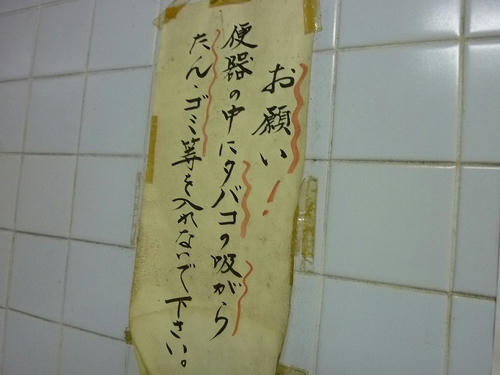 お願い!
便器の中にタバコの吸がら
たん・ゴミ等を入れないで下さい。